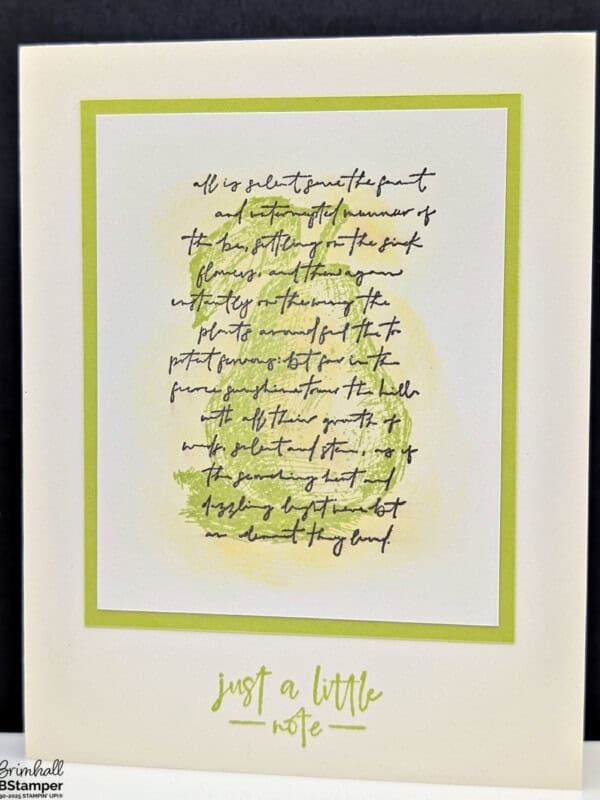 all is silent save the faint
and interrupted murmur of
the be, settling on the sick
flowers, and then again
instantly on the wing the
plants around feel the to
potent fervour: but far in the
fierce sunshine tower the hills
with all their growth of
woods, silent and stern, as if
the scorching heat and
dazzling light were but
an element they loved.
just a little
note
Brimhall
BStamper
-2025 STAMPIN' UP!®